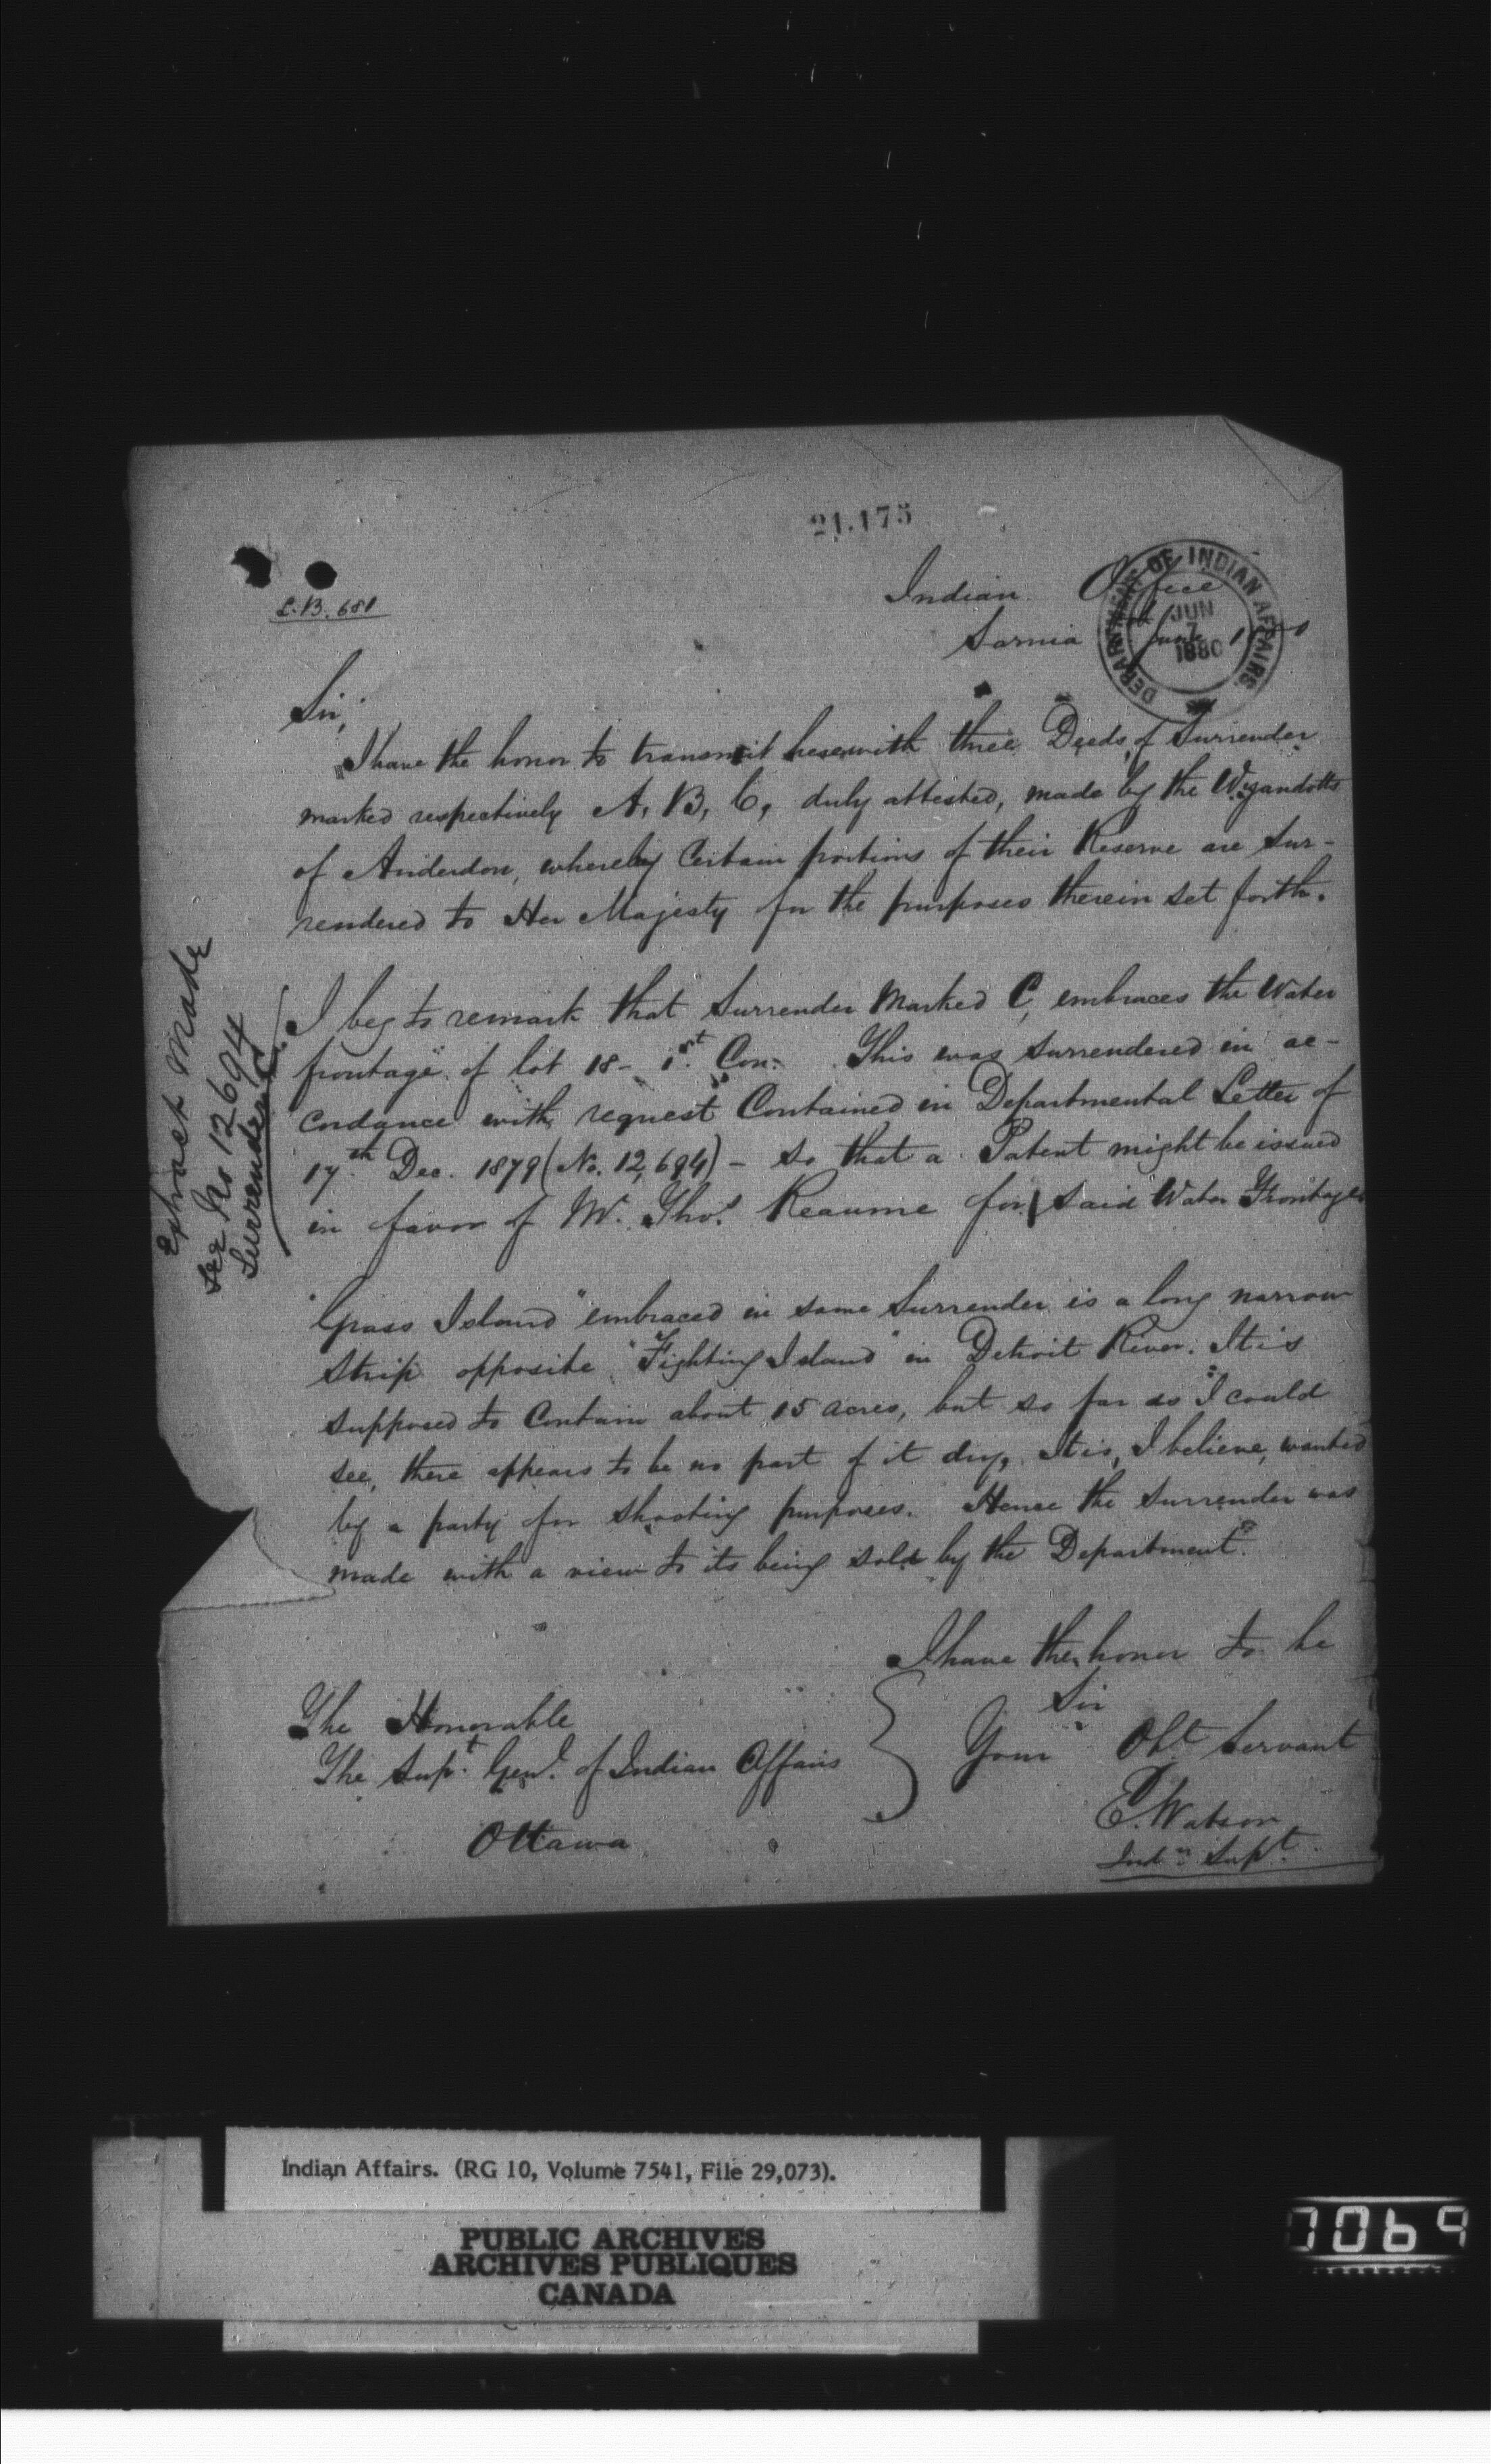 21.175
L.B. 681
Indian Office
Sarnia June
DEPARTMENT OF INDIAN AFFAIRS.
JUN
7
1880
Sir,
I have the honor to transmit herewith three Deeds of Surrender
marked respectively A, B, C, duly attested, made by the Wyandotts
of Anderdon, whereby Certain portions of their Reserve are Sur-
rendered to Her Majesty for the purposes therein set forth.
Extract Made
See No 12694
Surrender C.
I beg to remark that Surrender Marked C, embraces the Water
frontage of lot 18 - 1st Con: This was Surrendered in ac-
cordance with request Contained in Departmental Letter of
17th Dec. 1879 (No. 12,694) - So that a Patent might be issued
in favor of Mr. Thos. Reaume for said Water Frontage
"Grass Island" embraced in same Surrender is a long narrow
Strip opposite "Fighting Island" in Detroit River. It is
supposed to Contain about 15 acres, but so far as I could
see, there appears to be no part of it dry, It is, I believe, wanted
by a party for Shooting purposes. Hence the Surrender was
made with a view to its being sold by the Department.
I have the honor to be
Sir
Your Obt Servant
E. Watson
Indn Supt.
The Honorable
The Supt. Genl. of Indian Affairs
Ottawa
Indian Affairs. (RG 10, Volume 7541, File 29,073).
PUBLIC ARCHIVES
ARCHIVES PUBLIQUES
CANADA
7069